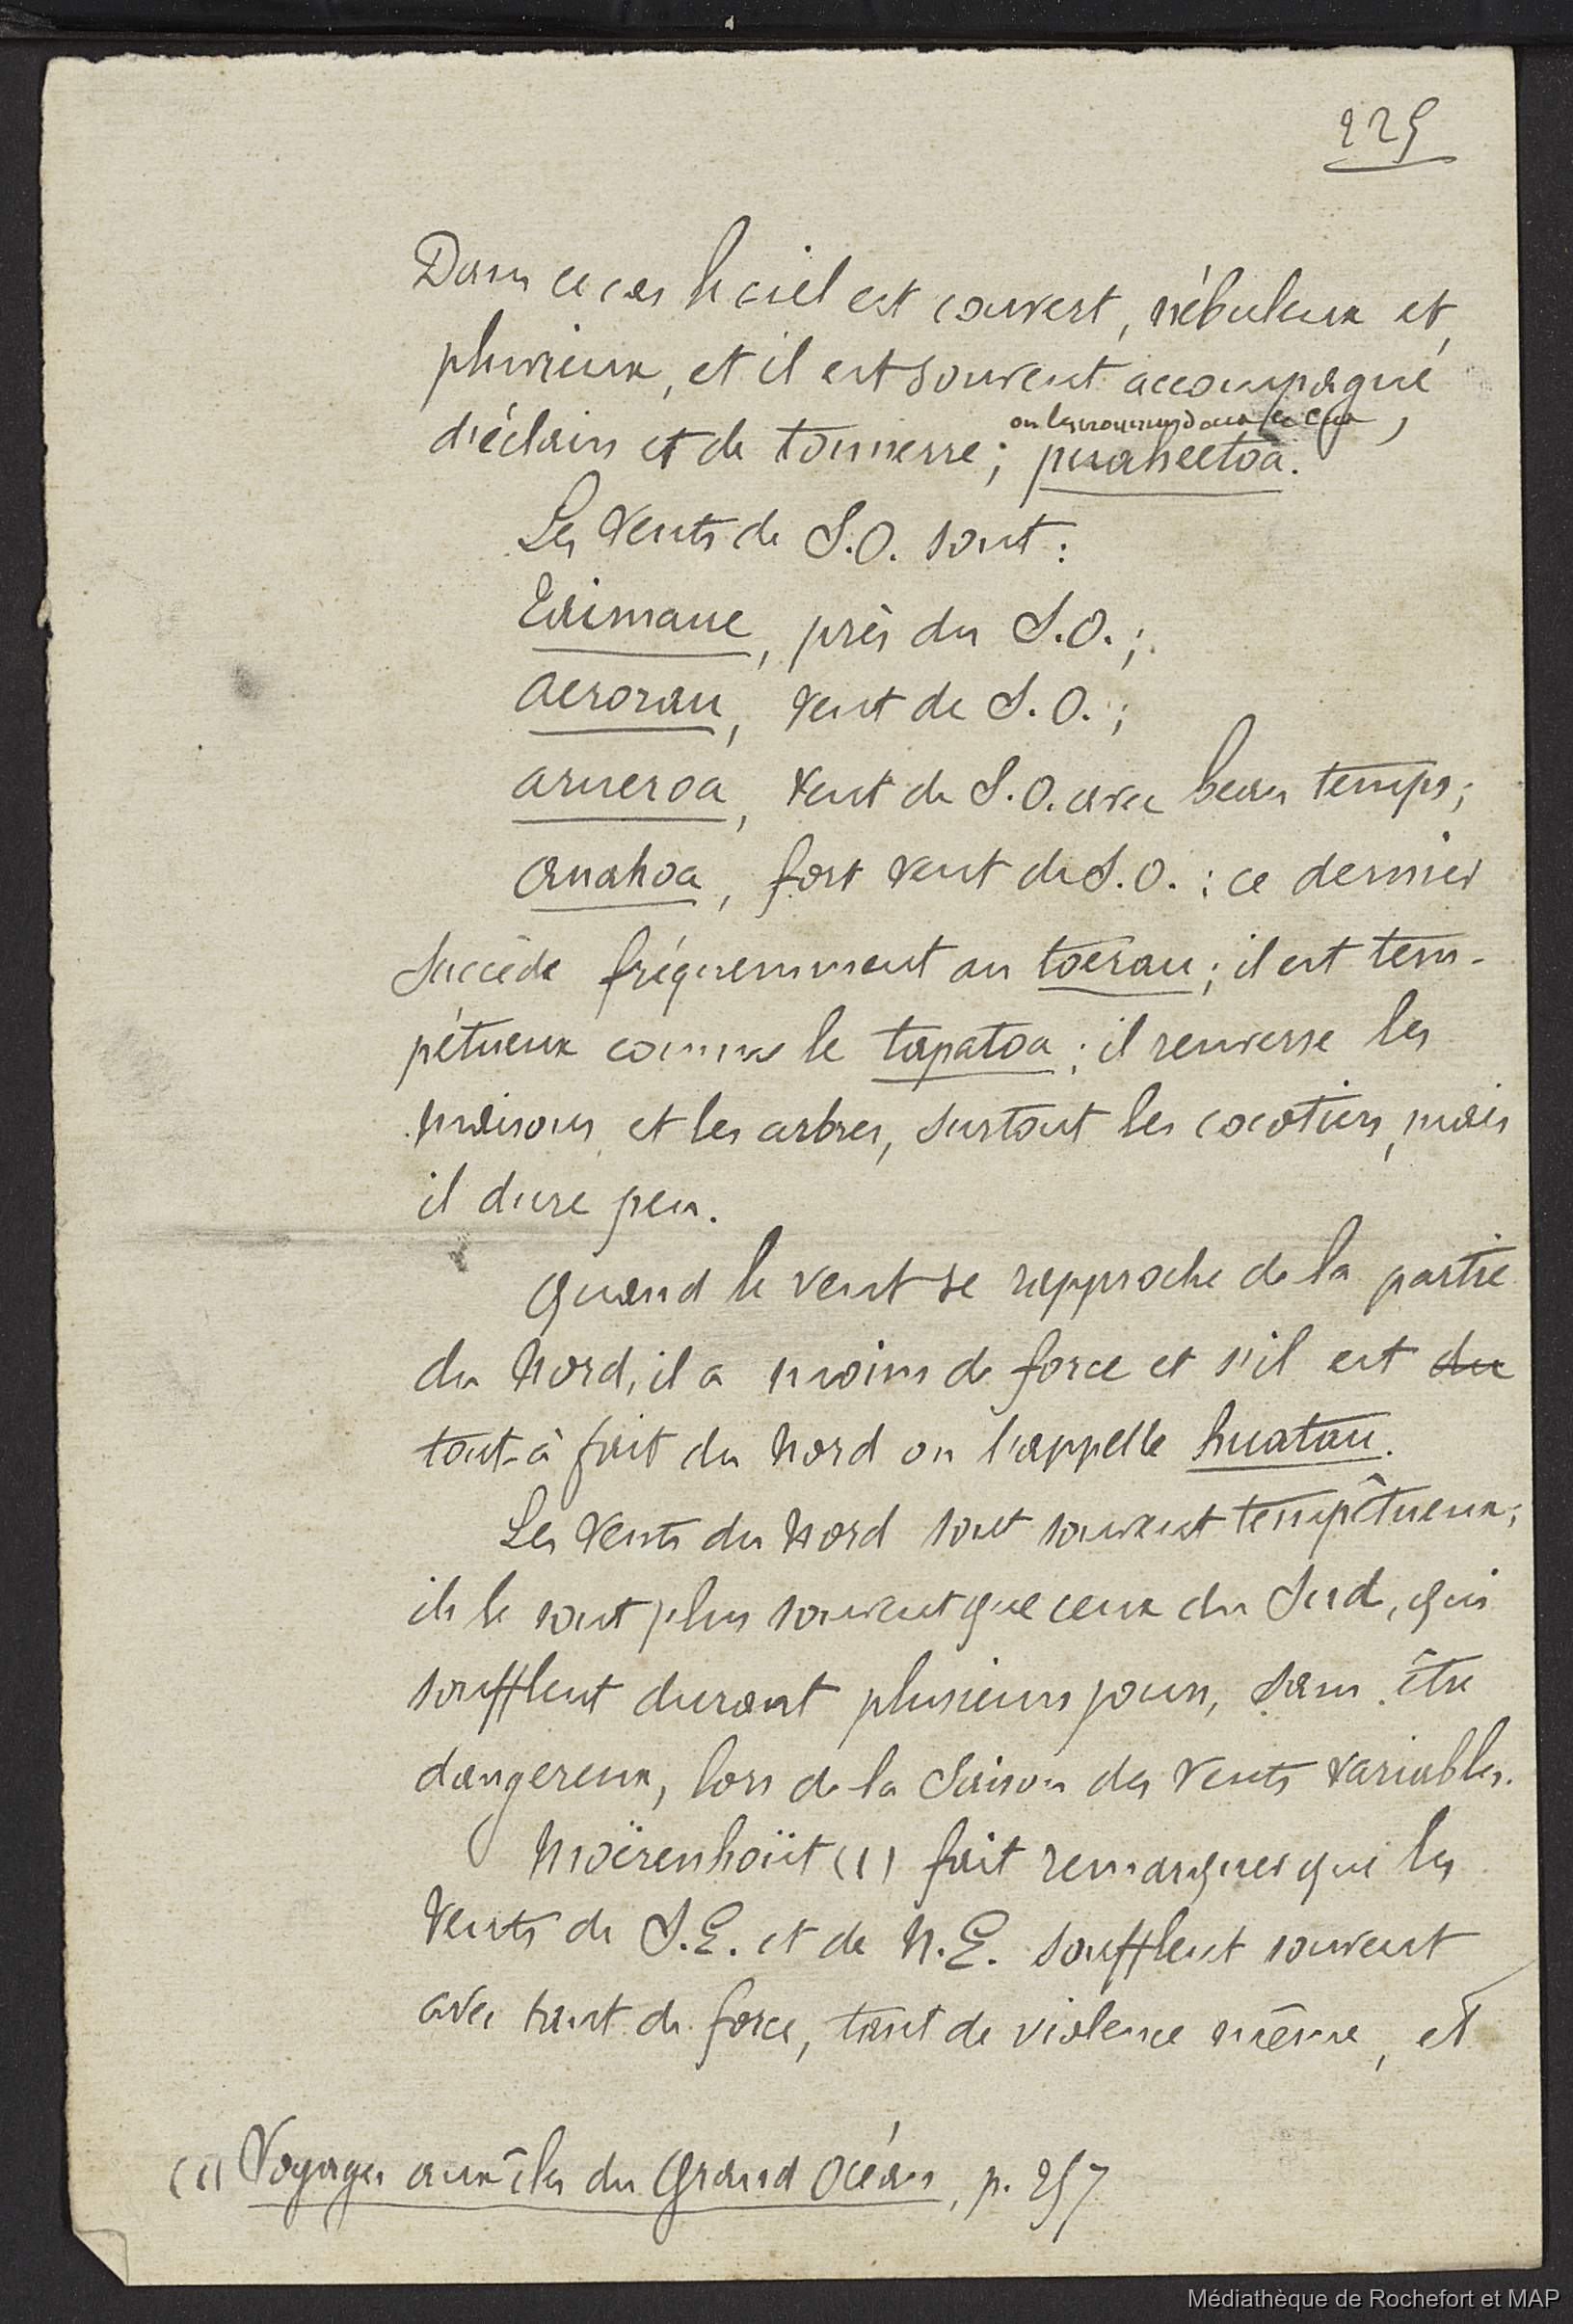 225
Dans ce cas le ciel est couvert, nébuleux et
pluvieux, et il est souvent accompagné
on les nomme dans ce cas,
d'éclairs et de tonnerre; puaheetoa.
Les vents de S.O. sont :
Edimaue, près du S.O.;
aerorau, vent de S.O.;
arueroa, vent de S.O. avec beau temps;
anahoa, fort vent de S.O. : ce dernier
succède fréquemment au toerau; il est tem-
pétueux comme le tapatoa; il renverse les
maisons et les arbres, surtout les cocotiers, mais
il dure peu.
Quand le vent se rapproche de la partie
du Nord, il a moins de force et s'il est du
tout-à fait du Nord on l'appelle huatau.
Les vents du Nord sont souvent tempêtueux;
ils le sont plus souvent que ceux du Sud, qui
soufflent durant plusieurs jours, sans être
dangereux, lors de la saison des vents variables.
Moërenhoüt (1) fait remarquer que les
vents de S.E. et de N.E. soufflent souvent
avec tant de force, tant de violence même, et
(1) Voyages aux îles du Grand Océan, p. 257
Médiathèque de Rochefort et MAP